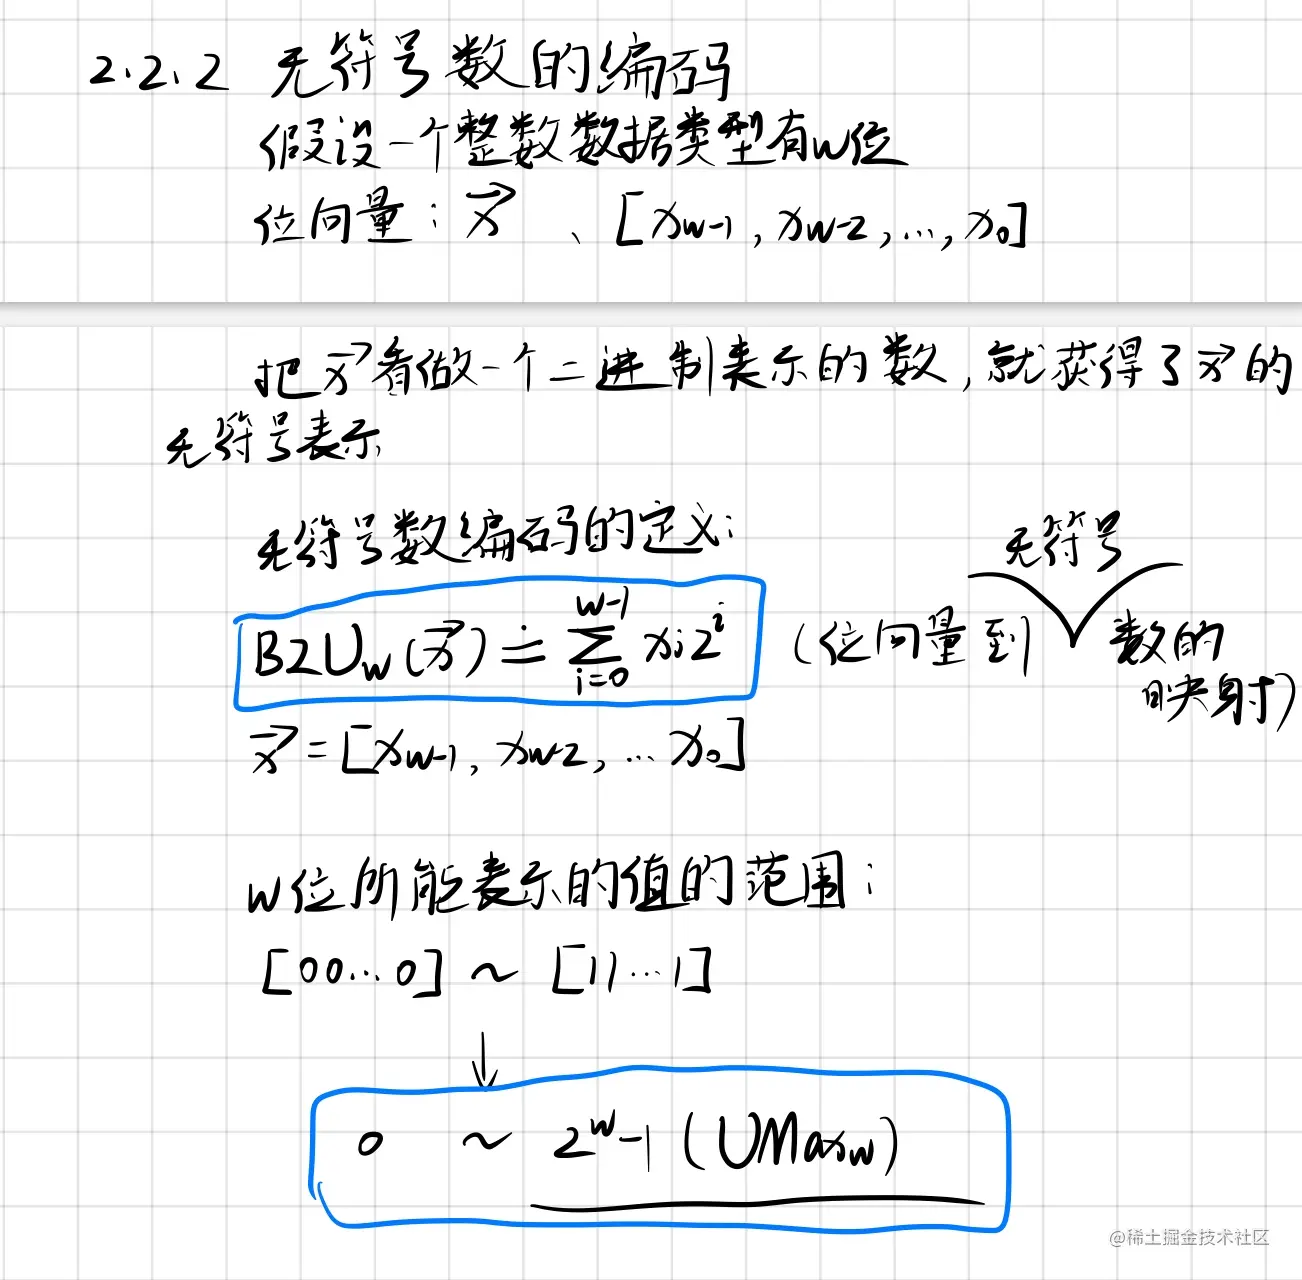 2.2.2 无符号数的编码
假设一个整数数据类型有w位
位向量：x⃗ 、[xw-1, xw-2, ..., x0]
把x⃗看做一个二进制表示的数，就获得了x⃗的
无符号表示
无符号数编码的定义：
B2Uw(x⃗) ≐ ∑_{i=0}^{w-1} xi2^i （位向量到无符号数的映射）
x⃗ = [xw-1, xw-2, ... x0]
w位所能表示的值的范围：
[00...0] ~ [11...1]
↓
0 ~ 2^w-1 (UMaxw)
@稀土掘金技术社区